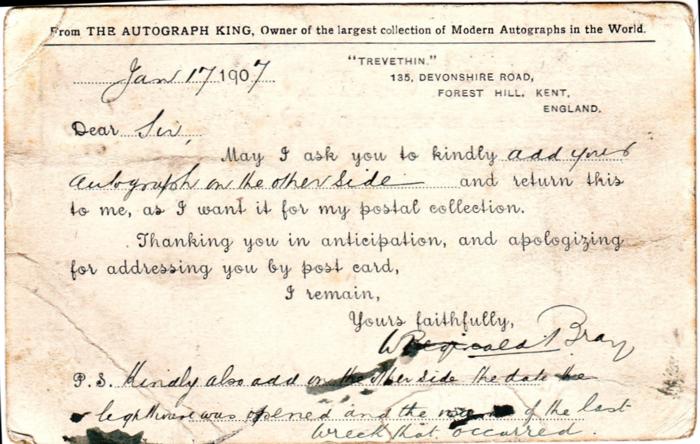 From THE AUTOGRAPH KING, Owner of the largest collection of Modern Autographs in the World.
"TREVETHIN."
Jan 17 1907.
135, DEVONSHIRE ROAD,
FOREST HILL, KENT,
ENGLAND.
Dear Sir,
May I ask you to kindly add your
autograph on the other side and return this
to me, as I want it for my postal collection.
Thanking you in anticipation, and apologizing
for addressing you by post card,
I remain,
Yours faithfully,
W Reginald Bray
P.S. Kindly also add on the other side the date the
lighthouse was opened and the of the last
wreck that occurred.